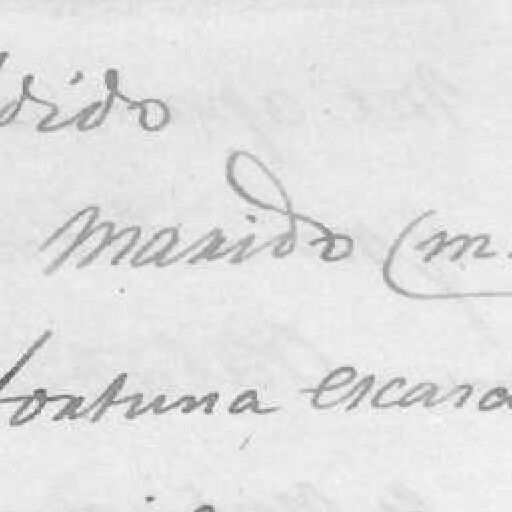 dido
Marido (m.
fortuna escasa